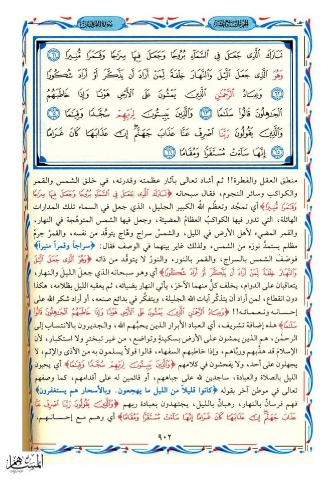 تَبَارَكَ الَّذِي جَعَلَ فِي السَّمَاءِ بُرُوجًا وَجَعَلَ فِيهَا سِرَاجًا وَقَمَرًا مُّنِيرًا ٦١
وَهُوَ الَّذِي جَعَلَ اللَّيْلَ وَالنَّهَارَ خِلْفَةً لِّمَنْ أَرَادَ أَن يَذَّكَّرَ أَوْ أَرَادَ شُكُورًا
٦٢ وَعِبَادُ الرَّحْمَٰنِ الَّذِينَ يَمْشُونَ عَلَى الْأَرْضِ هَوْنًا وَإِذَا خَاطَبَهُمُ
الْجَاهِلُونَ قَالُوا سَلَامًا ٦٣ وَالَّذِينَ يَبِيتُونَ لِرَبِّهِمْ سُجَّدًا وَقِيَامًا ٦٤
وَالَّذِينَ يَقُولُونَ رَبَّنَا اصْرِفْ عَنَّا عَذَابَ جَهَنَّمَ إِنَّ عَذَابَهَا كَانَ غَرَامًا
٦٥ إِنَّهَا سَاءَتْ مُسْتَقَرًّا وَمُقَامًا ٦٦
منطق العقل والفطرة!! ثم أشاد تعالى بآثار عظمته وقدرته، في خلق الشمس والقمر
والكواكب وسائر النجوم، فقال سبحانه ﴿تَبَارَكَ الَّذِي جَعَلَ فِي السَّمَاءِ بُرُوجًا وَجَعَلَ فِيهَا سِرَاجًا
وَقَمَرًا مُّنِيرًا﴾ أي تمجَّد وتعظَّم الله الكبير الجليل، الذي جعل في السماء تلك المدارات
الهائلة، التي تدور فيها الكواكبُ العِظامُ المضيئة، وجعل فيها الشمس المتوهِّجة في النهار،
والقمر المضيء لأهل الأرض في الليل، والشمسُ سراجٌ وهَّاج يتوقَّد من نفسه، والقمرُ جِرمٌ
مظلم يستمدُّ نوره من الشمس، ولذلك غاير بينهما في الوصف فقال: ﴿سراجاً وقمراً منيراً﴾
فوصف الشمس بالسراج، والقمر بالنور، والنورُ لا يتوقد من ذاته ﴿وَهُوَ الَّذِي جَعَلَ اللَّيْلَ
وَالنَّهَارَ خِلْفَةً لِّمَنْ أَرَادَ أَن يَذَّكَّرَ أَوْ أَرَادَ شُكُورًا﴾ أي وهو سبحانه الذي جعل الليلَ والنهار،
يتعاقبان على الدوام، يخلف كلٌّ منهما الآخر، يأتي النهار بضيائه، ثم يعقبه الليل بظلامه، هكذا
دون انقطاع، لمن أراد أن يتذكَّر آيات الله الجليلة، ويتفكَّر في بدائع صنعه، أو أراد شكر الله على
إحسانه ونعمائه!! ﴿وَعِبَادُ الرَّحْمَٰنِ الَّذِينَ يَمْشُونَ عَلَى الْأَرْضِ هَوْنًا وَإِذَا خَاطَبَهُمُ الْجَاهِلُونَ قَالُوا
سَلَامًا﴾ هذه إضافة تشريف، أي العباد الأبرار الذين يحبُّهم الله، والجديرون بالانتساب إلى
الرحمن، هم الذين يمشون على الأرض بسكينة وتواضع، من غير تبخترٍ ولا استكبار، لأن
الإسلام قد هذَّبهم وربَّاهم، وإذا خاطبهم السفهاء، قالوا قولاً يسلمون به من الأذى والإثم، لا
يجهلون على أحد، ولا يفحشون في كلامهم ﴿وَالَّذِينَ يَبِيتُونَ لِرَبِّهِمْ سُجَّدًا وَقِيَامًا﴾ أي يحيون
الليل بالصلاة والعبادة، ساجدين لله على جباههم، أو قائمين له على أقدامهم، كما وصفهم
تعالى في موطن آخر بقوله ﴿كانوا قليلاً من الليل ما يهجعون. وبالأسحار هم يستغفرون﴾
فهم فرسان بالنهار، رهبانٌ بالليل، يجتهدون بعبادة ربهم ﴿وَالَّذِينَ يَقُولُونَ رَبَّنَا اصْرِفْ عَنَّا
عَذَابَ جَهَنَّمَ إِنَّ عَذَابَهَا كَانَ غَرَامًا إِنَّهَا سَاءَتْ مُسْتَقَرًّا وَمُقَامًا﴾ أي وهم مع إحسانهم
٩٠٢